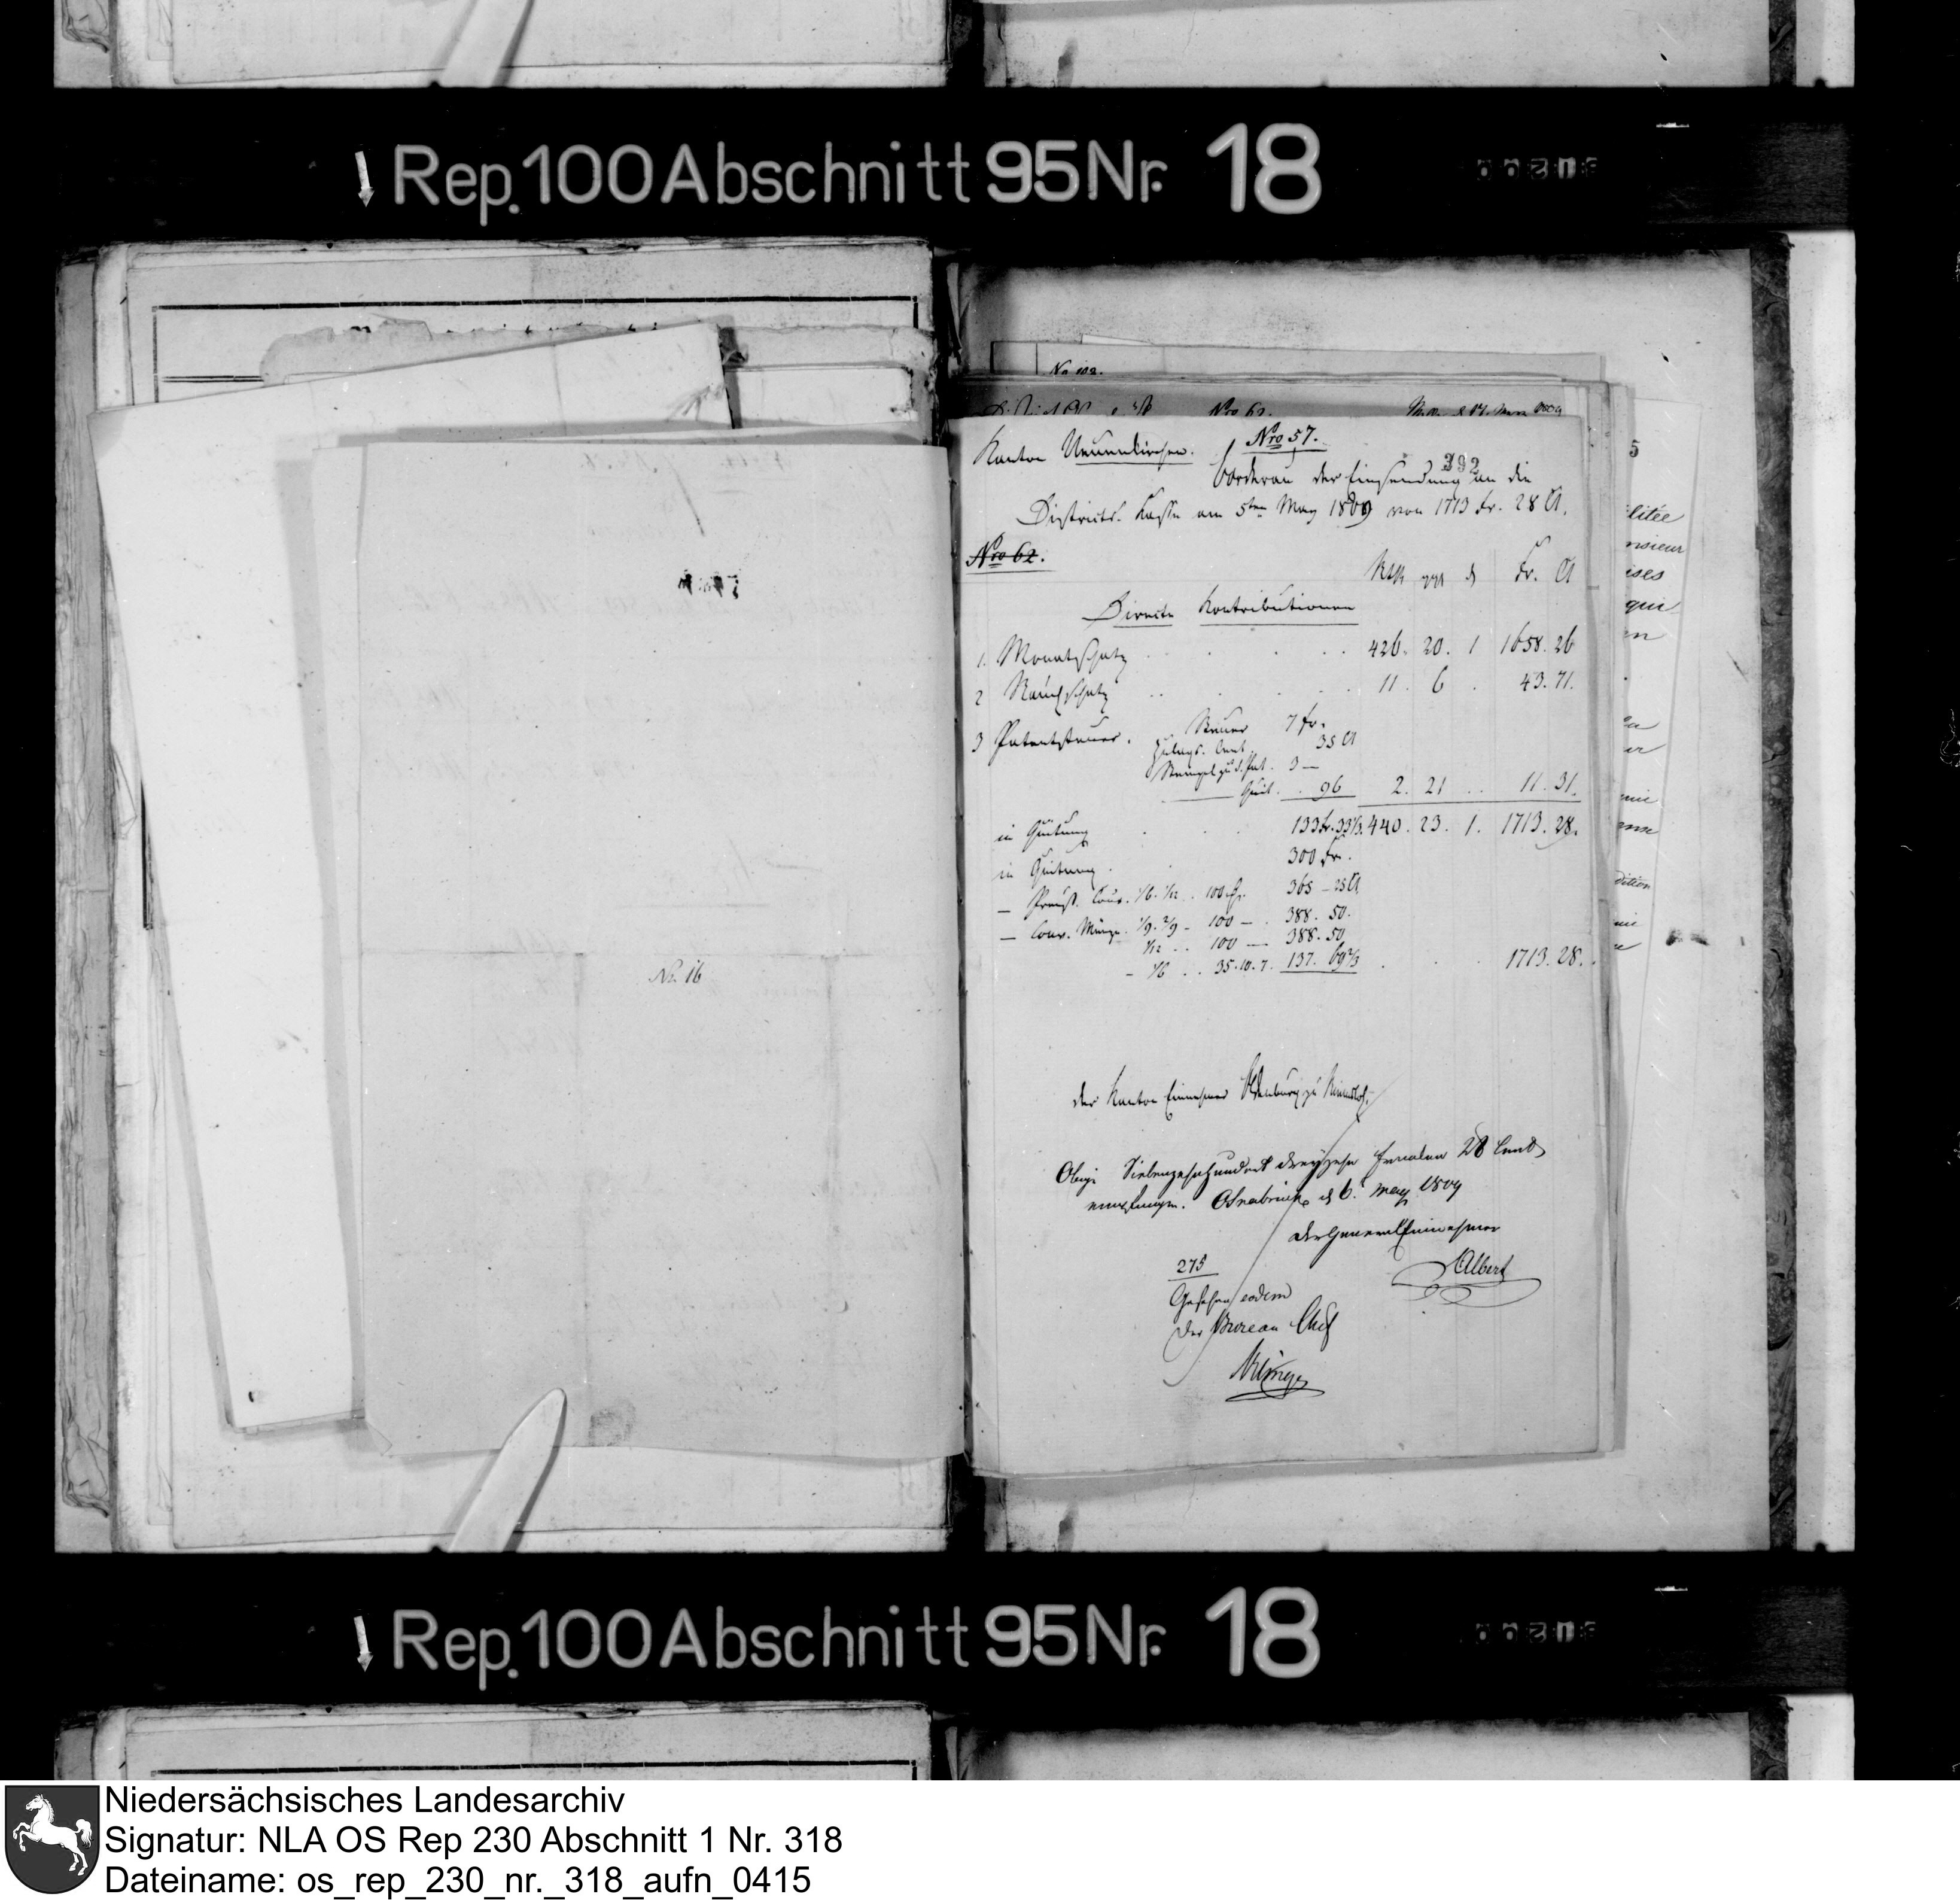 Rep. 100 Abschnitt 95 Nr. 18
No 102.
Nro 62.
Kanton Neuenkirchen. Nro 57.
392
Borderau der Einsendung an die
Districts-Kasse am 5ten May 1809 von 1713 Fr. 28 Ct.
Nro 62.
Rthl ggl d Fr. Ct
Directe Kontributionen
1. Monatschatz 426. 20. 1 1658. 26
2 Rauchschatz 11. 6. 43. 71.
3 Patentsteuer. Steuer 7 fr.
Zulags. Cent. 35 Ct
Stempel zu d. Pat. 3 —
Quit. . 96 2. 21 .. 11. 31.
in Quitung 133 fr. 33 1/3. 440. 23. 1. 1713. 28.
in Quitung. 300 Fr.
— Preuß. Cour. 1/6. 1/12 .. 100 365 – 25 Ct
— Conv. Münze. 1/3. 2/3 – 100 — . 388. 50.
1/12 .. 100 — 388. 50
– 1/6 .. 35. 10. 7. 137. 69 2/3 1713. 28.
Nr. 16
der Kanton Einnehmer Oldenburg zu
Obige Siebenzehnhundert dreyzehn Franken 28 Cent
empfangen. Osnabrück d 6t May 1809
der General Einnehmer
Albert
275
Gesehen eodem
der Bureau Chef
5
litée
nsieur
ises
qui
en
dition
Rep. 100 Abschnitt 95 Nr. 18
Niedersächsisches Landesarchiv
Signatur: NLA OS Rep 230 Abschnitt 1 Nr. 318
Dateiname: os_rep_230_nr._318_aufn_0415